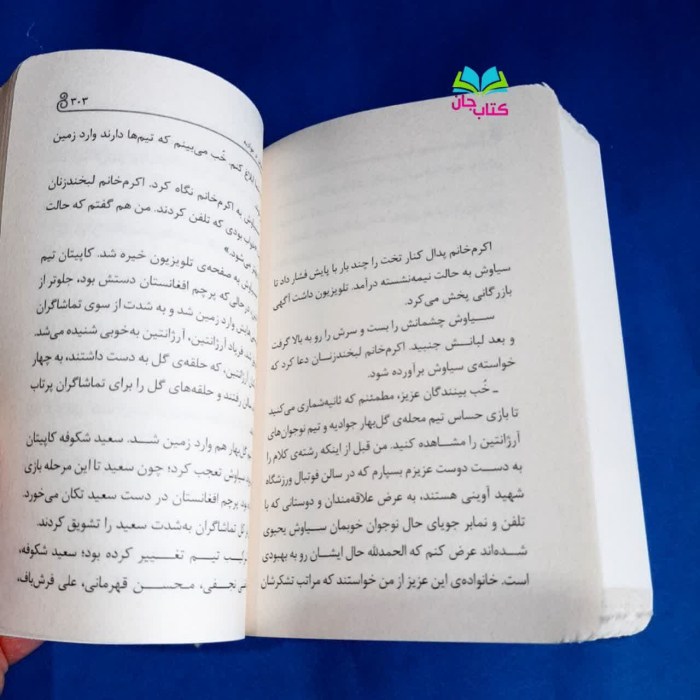 کتاب جان
اکرم‌خانم پدال کنار تخت را چند بار با پایش فشار داد تا
سیاوش به حالت نیمه‌نشسته درآمد. تلویزیون داشت آگهی
بازرگانی پخش می‌کرد.
سیاوش چشمانش را بست و سرش را رو به بالا گرفت
و بعد لبانش جنبید. اکرم‌خانم لبخندزنان دعا کرد که
خواسته‌ی سیاوش برآورده شود.
ـ خُب بینندگان عزیز، مطمئنم که ثانیه‌شماری می‌کنید
تا بازی حساس تیم محله‌ی گل‌بهار جوادیه و تیم نوجوان‌های
آرژانتین را مشاهده کنید. من قبل از اینکه رشته‌ی کلام را
به دست دوست عزیزم بسپارم که در سالن فوتبال ورزشگاه
شهید آوینی هستند، به عرض علاقه‌مندان و دوستانی که با
تلفن و نمابر جویای حال نوجوان خوبمان سیاوش یحیوی
شده‌اند عرض کنم که الحمدلله حال ایشان رو به بهبودی
است. خانواده‌ی این عزیز از من خواستند که مراتب تشکرشان
۳۰۳
ابلاغ کنم. خُب می‌بینم که تیم‌ها دارند وارد زمین
به اکرم‌خانم نگاه کرد. اکرم‌خانم لبخندزنان
بودی که تلفن کردند. من هم گفتم که حالت
می‌شود.»
به صفحه‌ی تلویزیون خیره شد. کاپیتان تیم
حالی‌که پرچم افغانستان دستش بود، جلوتر از
وارد زمین شد و به شدت از سوی تماشاگران
فریاد آرژانتین، آرژانتین به‌خوبی شنیده می‌شد.
آرژانتین، که حلقه‌ی گل به دست داشتند، به چهار
رفتند و حلقه‌های گل را برای تماشاگران پرتاب
گل‌بهار هم وارد زمین شد. سعید شکوفه کاپیتان
سیاوش تعجب کرد؛ چون سعید تا این مرحله بازی
پرچم افغانستان در دست سعید تکان می‌خورد.
تماشاگران به‌شدت سعید را تشویق کردند.
ترکیب تیم تغییر کرده بود؛ سعید شکوفه،
نجفی، محسن قهرمانی، علی فرش‌باف،